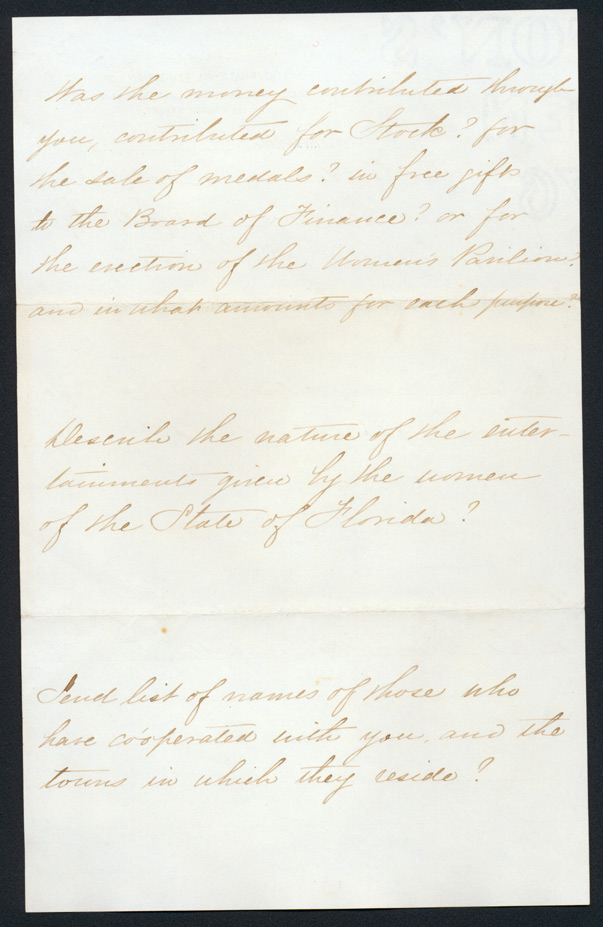 Was the money contributed through
you, contributed for Stock? for
the sale of medals? in free gifts
to the Board of Finance? or for
the erection of the Women's Pavilion?
and in what amounts for each purpose?
Describe the nature of the enter-
tainments given by the women
of the State of Florida?
Send list of names of those who
have coöperated with you, and the
towns in which they reside?